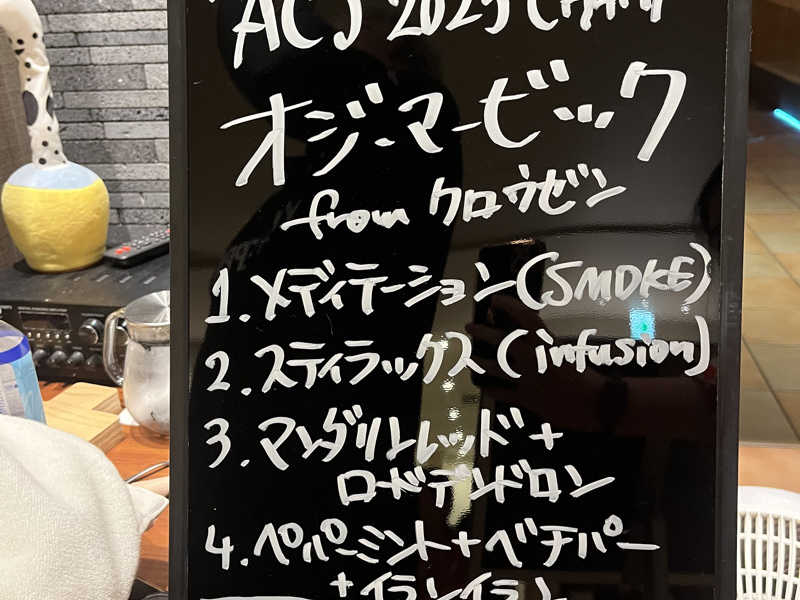 ACJ 2025
オジマービック
from クロウゼン
1. メディテーション(SMOKE)
2. スティラックス(infusion)
3. マンダリンレッド+
ロードデンドロン
4. ペパーミント+ベチパー
+イランイラン